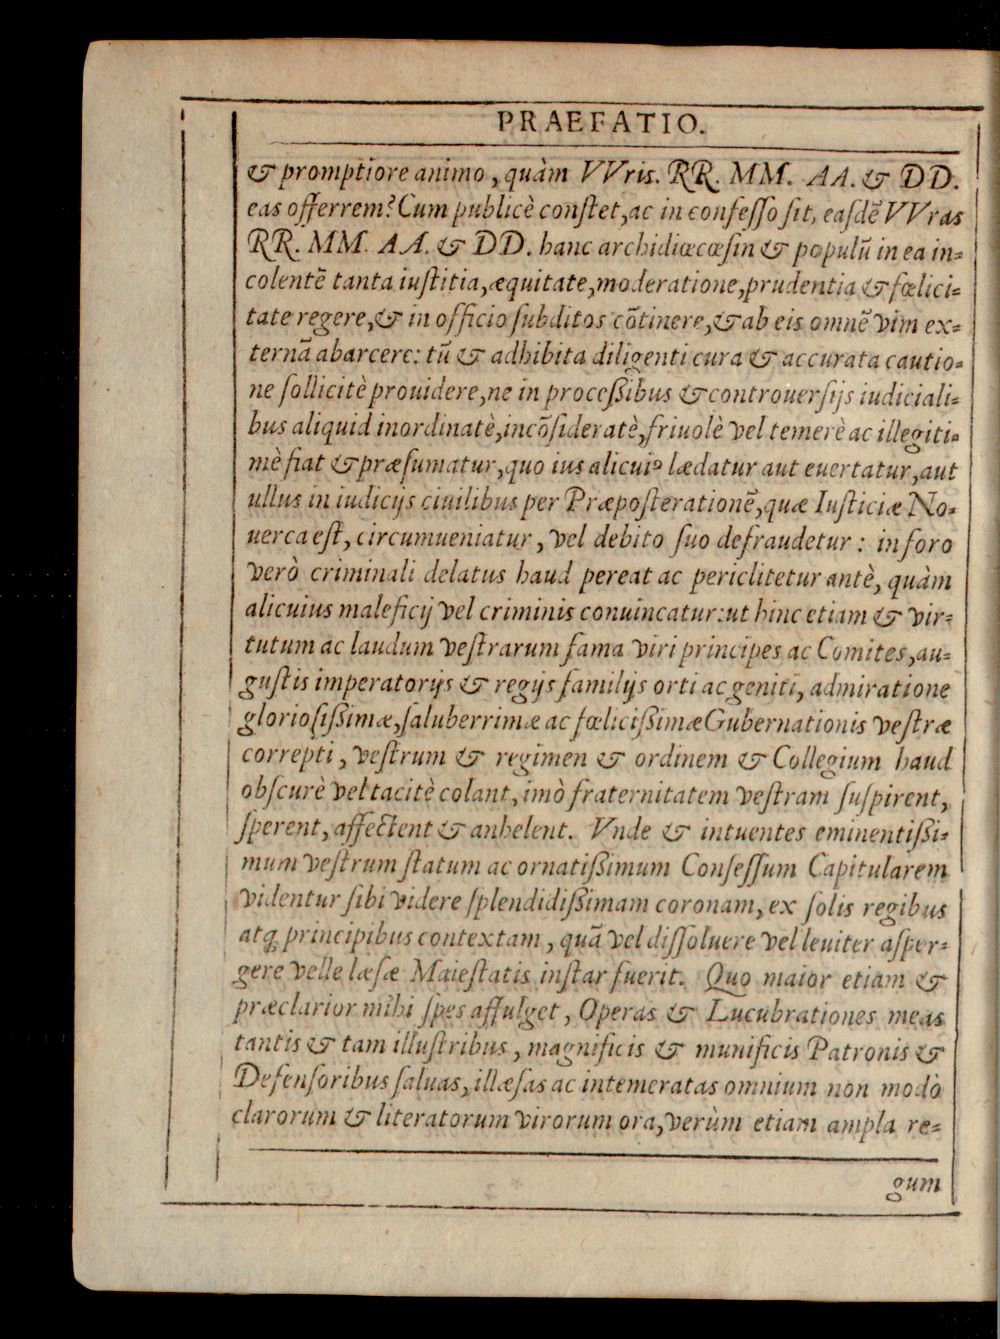 PRAEFATIO.
& promptiore animo, quàm VVris. RR. MM. AA. & DD.
eas offerrem? Cum publicè conſtet, ac in confeſſo ſit, eaſdē VVras
RR. MM. AA. & DD. hanc archidiœcœſin & populū in ea in-
colentē tanta iuſtitia, æquitate, moderatione, prudentia & fœlici-
tate regere, & in officio ſubditos cōtinere, & ab eis omnē vim ex-
ternā abarcere: tū & adhibita diligenti cura & accurata cautio-
ne ſollicitè prouidere, ne in proceßibus & controuerſijs iudiciali-
bus aliquid inordinatè, incōſideratè, friuolè vel temerè ac illegiti-
mè fiat & præſumatur, quo ius alicuiꝰ lædatur aut euertatur, aut
ullus in iudicijs ciuilibus per Præpoſterationē, quæ Iuſticiæ No-
uerca eſt, circumueniatur, vel debito ſuo defraudetur: in foro
verò criminali delatus haud pereat ac periclitetur antè, quàm
alicuius maleficij vel criminis conuincatur: ut hinc etiam & vir-
tutum ac laudum veſtrarum fama viri principes ac Comites, au-
guſtis imperatorijs & regijs familijs orti ac geniti, admiratione
glorioſißimæ, ſaluberrimæ ac fœlicißimæ Gubernationis veſtræ
correpti, veſtrum & regimen & ordinem & Collegium haud
obſcurè vel tacitè colant, imò fraternitatem veſtram ſuſpirent,
ſperent, affectent & anhelent. Vnde & intuentes eminentißi-
mum veſtrum ſtatum ac ornatißimum Conſeſſum Capitularem
videntur ſibi videre ſplendidißimam coronam, ex ſolis regibus
atq; principibus contextam, quā vel diſſoluere vel leuiter aſper-
gere velle læſæ Maieſtatis inſtar fuerit. Quo maior etiam &
præclarior mihi ſpes affulget, Operas & Lucubrationes meas
tantis & tam illuſtribus, magnificis & munificis Patronis &
Defenſoribus ſaluas, illæſas ac intemeratas omnium non modò
clarorum & literatorum virorum ora, verùm etiam ampla re-
gum